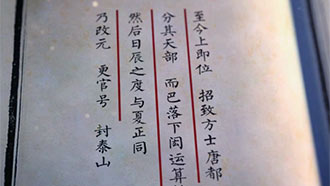 至今上即位 招致方士唐都
分其天部 而巴落下闳运算
然后日辰之度与夏正同
乃改元 更官号 封泰山